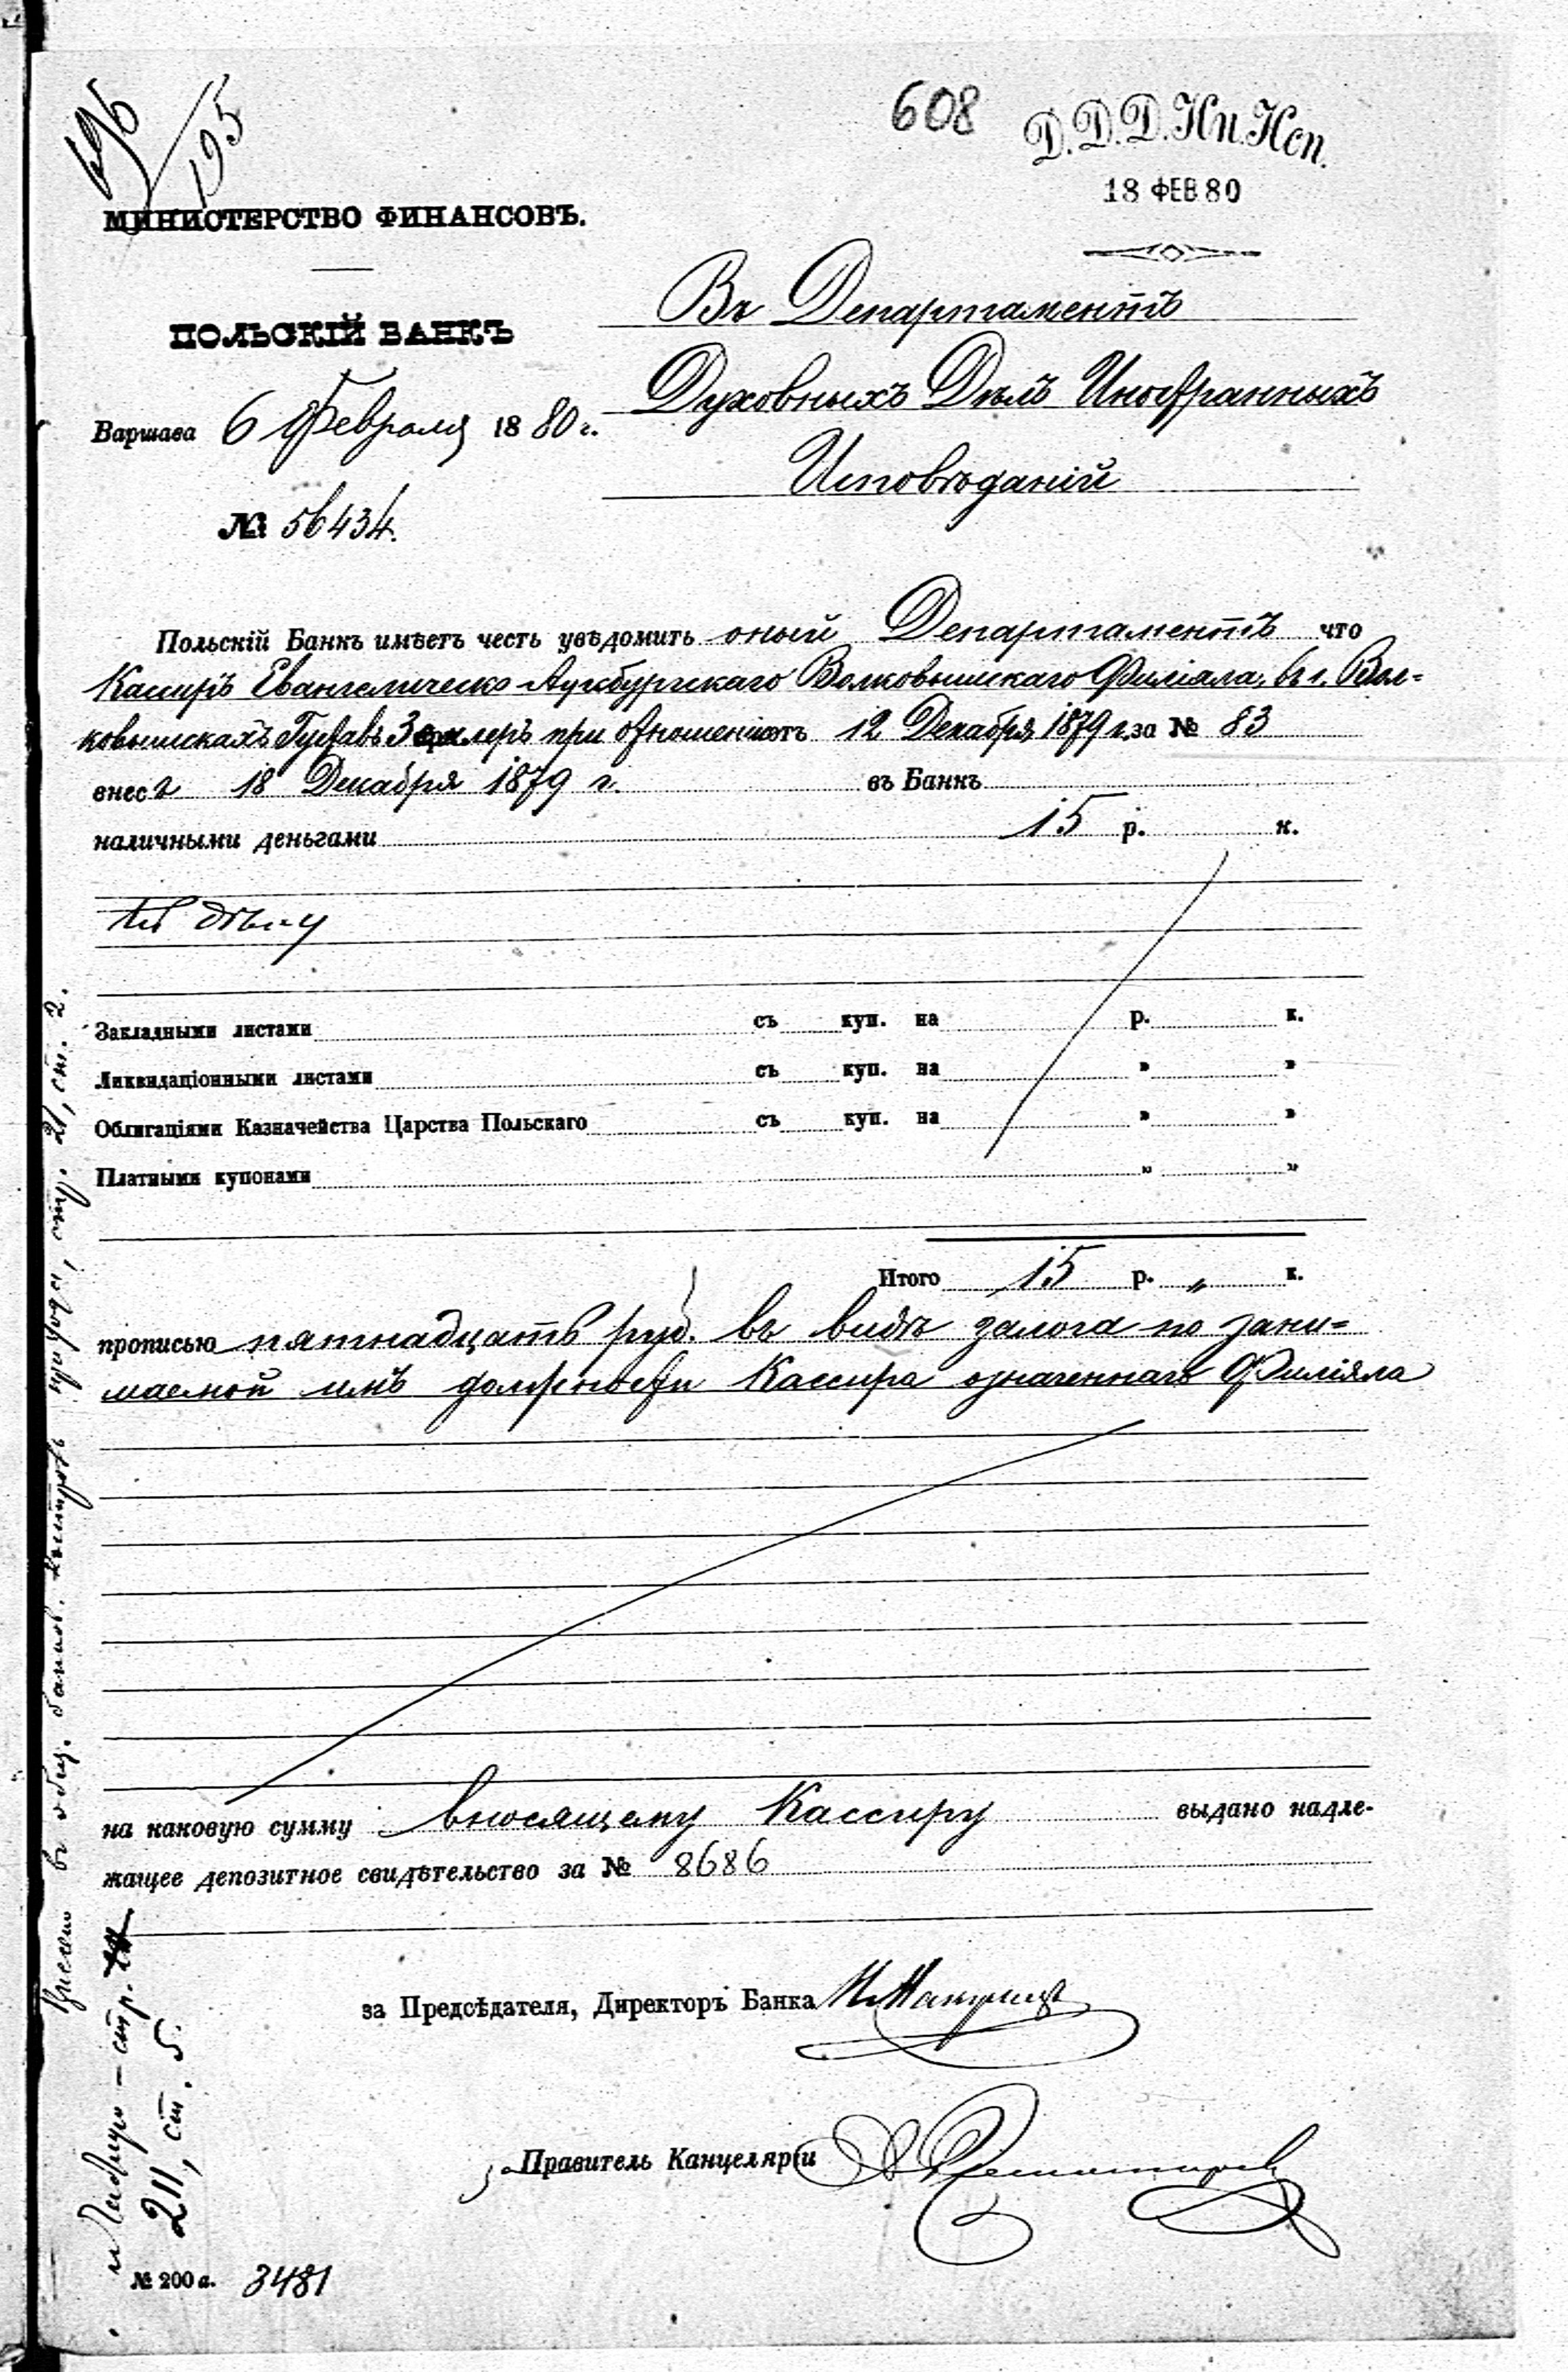 696/195
608
Д.Д.Д.Ин.Исп.
18 ФЕВ 80
МИНИСТЕРСТВО ФИНАНСОВЪ.
ПОЛЬСКІЙ БАНКЪ
Варшава 6 Февраля 1880 г.
№ 56434.
Въ Департаментъ
Духовныхъ Дѣлъ Иностранныхъ
Исповѣданій
Польскій Банкъ имѣетъ честь увѣдомить оный Департаментъ что
Касиръ Евангелическо-Аугсбургскаго Волковышскаго Филіала, въ г. Вол-
ковышкахъ Густавъ при отношеніи отъ 12 Декабря 1879 г. за № 83
внесъ 18 Декабря 1879 г. въ Банкъ
наличными деньгами 15 р. к.
къ дѣлу
Закладными листами съ куп. на р. к.
Ликвидаціонными листами съ куп. на " "
Облигаціями Казначейства Царства Польскаго съ куп. на " "
Платными купонами " "
Итого 15 р. " к.
прописью пятнадцать руб. въ видѣ залога по зани-
маемой имъ должности Кассира означеннаго Филіяла
на каковую сумму вносящему Кассиру выдано надле-
жащее депозитное свидѣтельство за № 8686
за Предсѣдателя, Директоръ Банка
Правитель Канцеляріи
№ 200 а. 3481
стр. 21, ст. 2.
211, ст. 5.